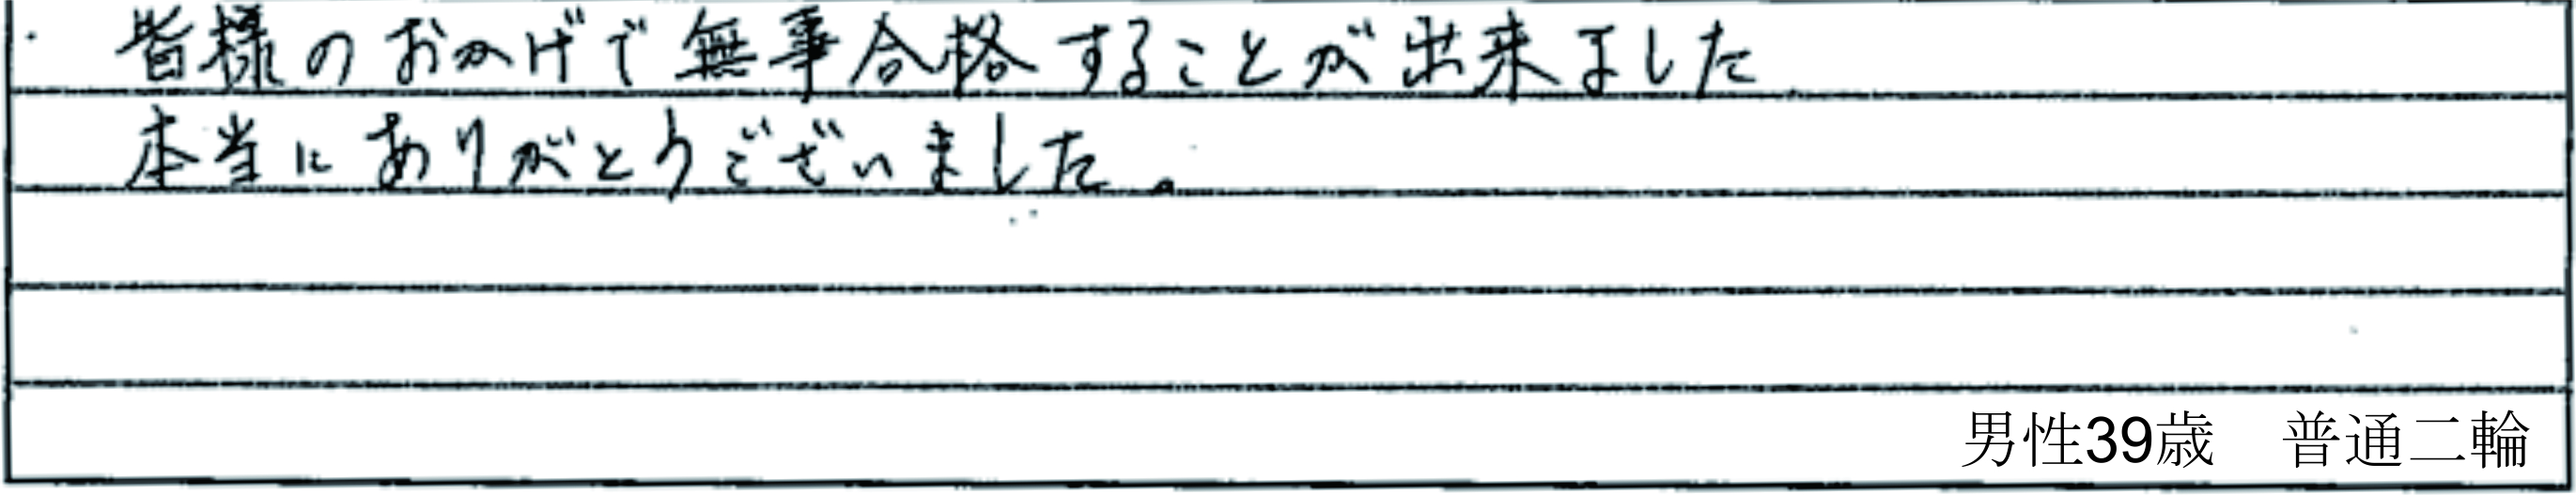 ・皆様のおかげで無事合格することが出来ました
本当にありがとうございました。
男性39歳　普通二輪